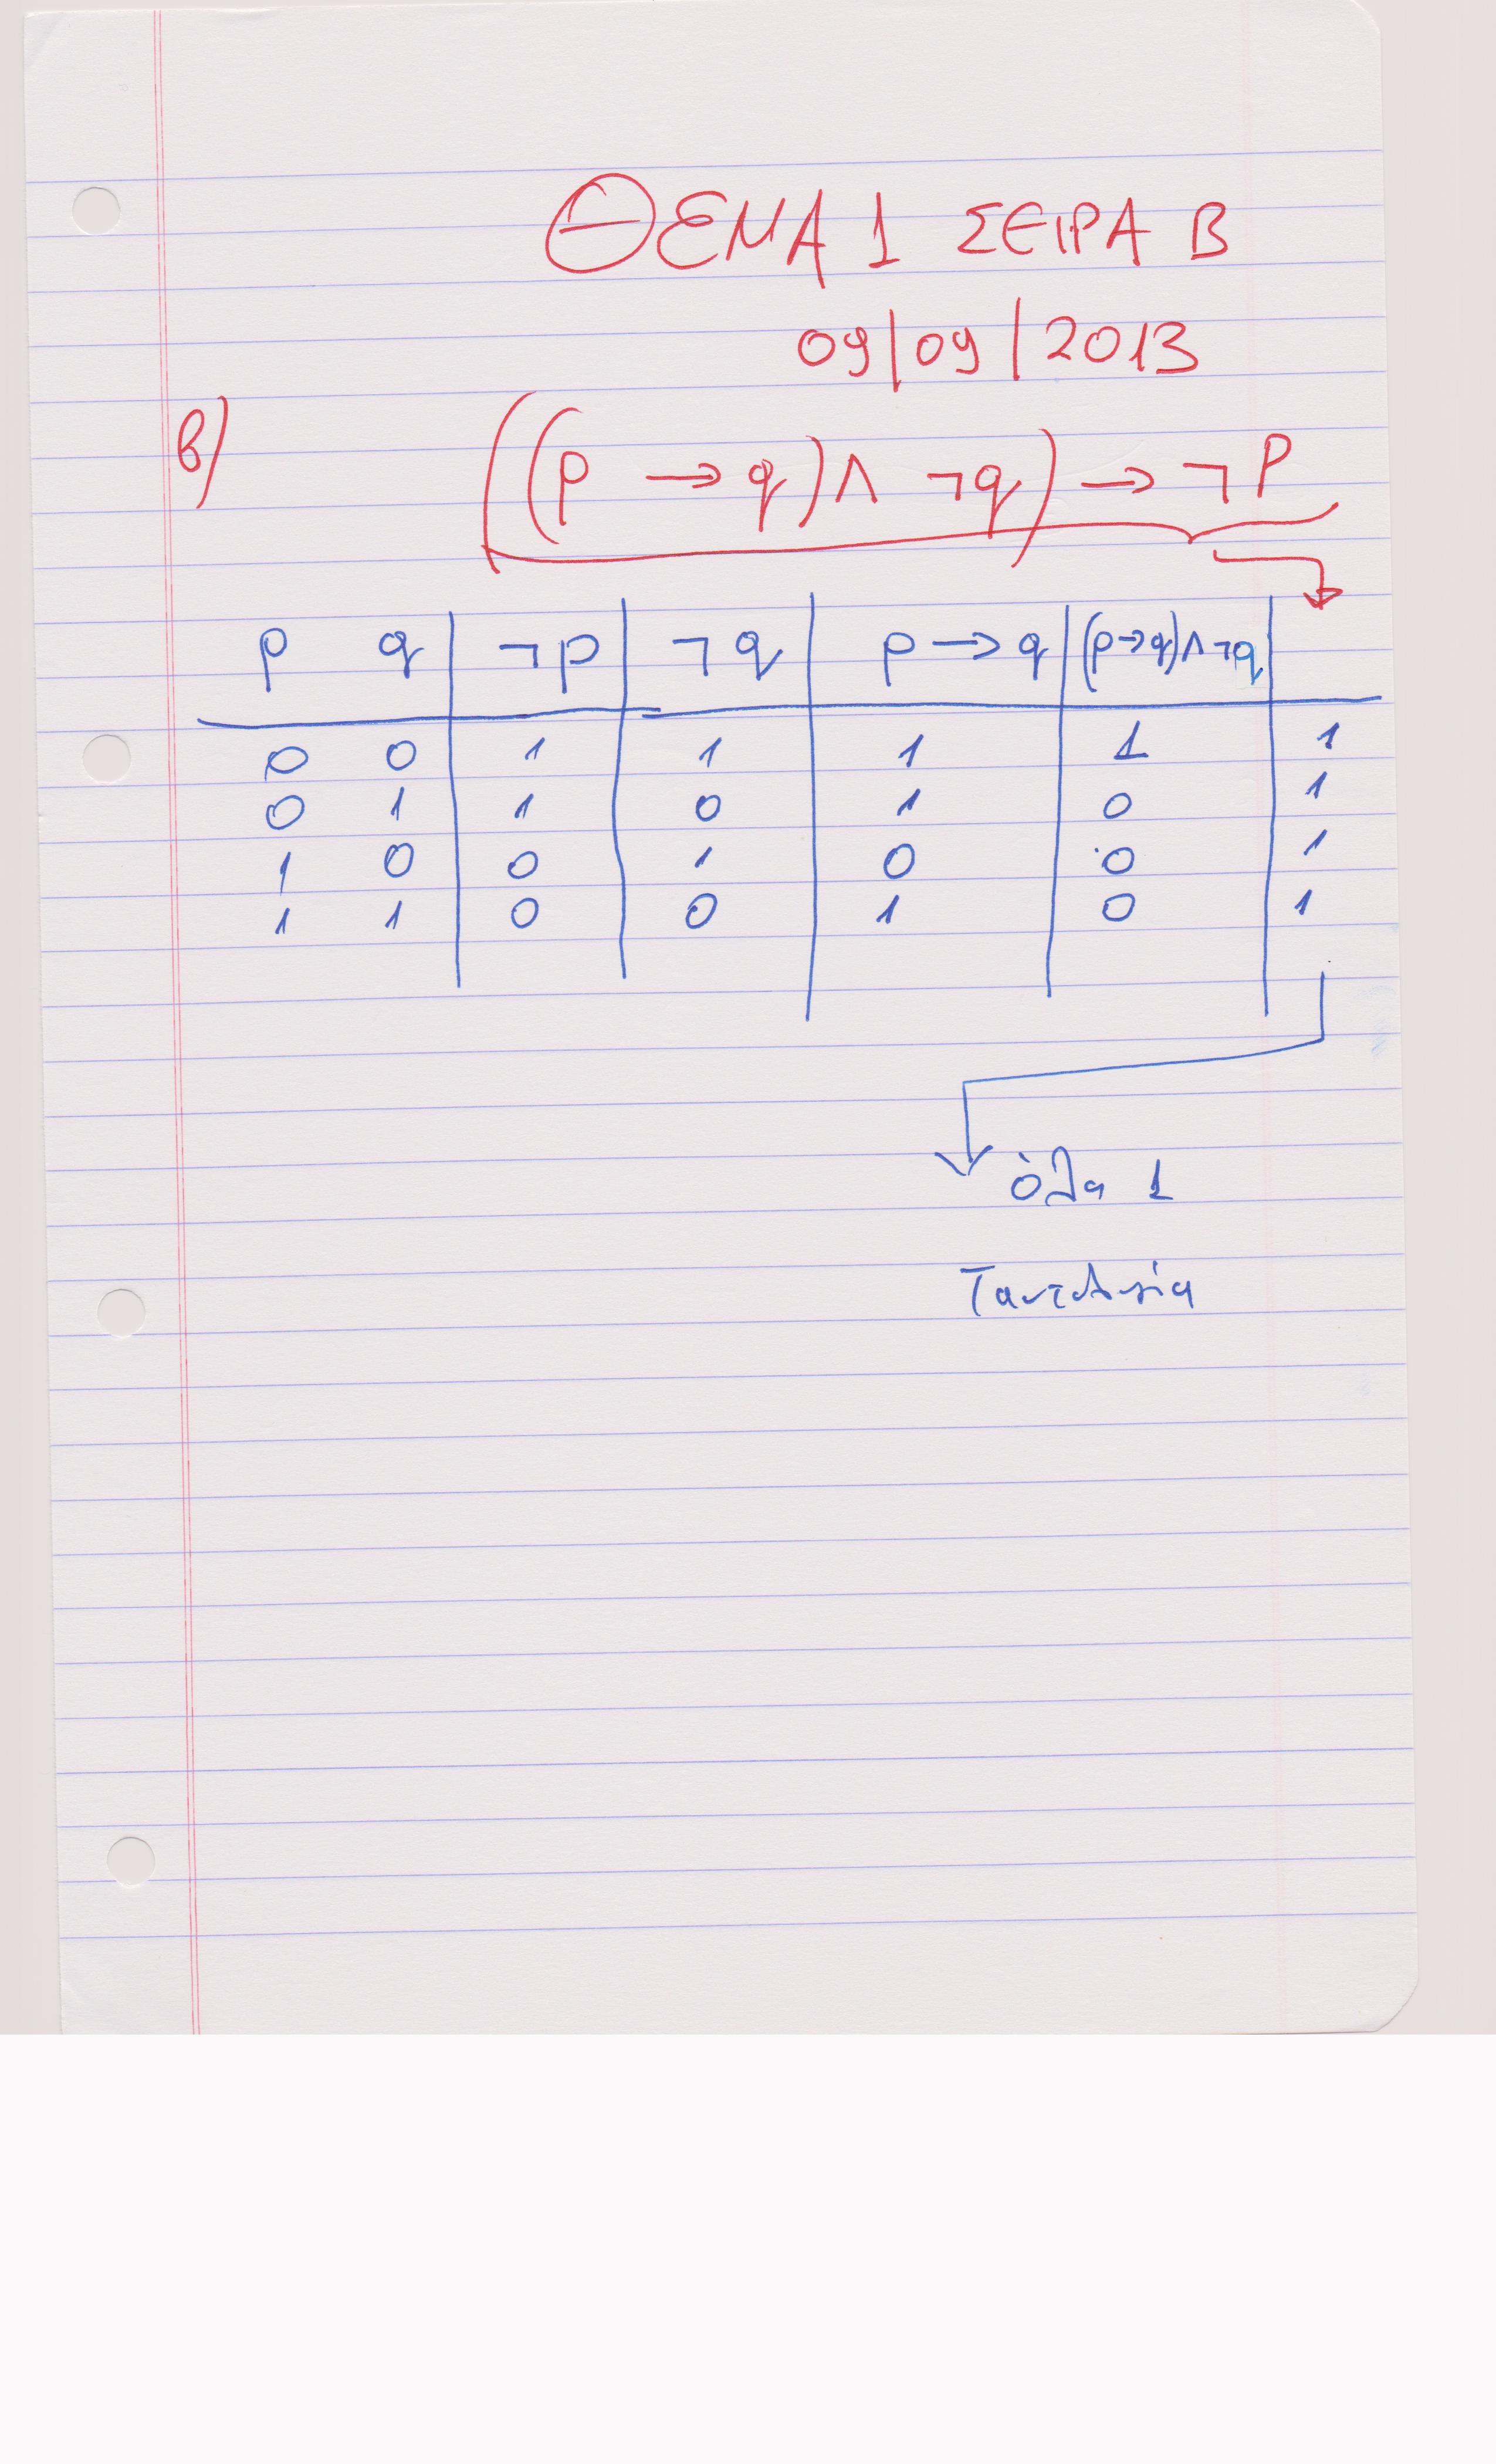 ΘΕΜΑ 1 ΣΕΙΡΑ Β
09/09/2013
β) ((p → q) ∧ ¬q) → ¬p
p q | ¬p | ¬q | p → q | (p→q)∧¬q |
0 0 | 1 | 1 | 1 | 1 | 1
0 1 | 1 | 0 | 1 | 0 | 1
1 0 | 0 | 1 | 0 | 0 | 1
1 1 | 0 | 0 | 1 | 0 | 1
όλα 1
Ταυτολογία